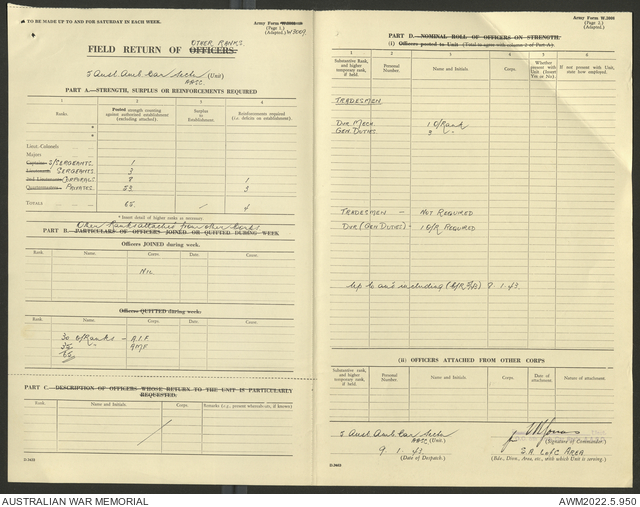 TO BE MADE UP TO AND FOR SATURDAY IN EACH WEEK.
Army Form W.3008
(Page 1.)
(Adapted.) W3009
OTHER RANKS.
FIELD RETURN OF OFFICERS.
5 Aust Amb Car Sectn (Unit)
AASC
PART A.—STRENGTH, SURPLUS OR REINFORCEMENTS REQUIRED
1 2 3 4
Ranks. Posted strength counting against authorised establishment (excluding attached). Surplus to Establishment. Reinforcements required (i.e. deficits on establishment).
*
*
Lieut.-Colonels
Majors
Captains S/SERGEANTS 1
Lieutenants SERGEANTS 3
2nd Lieutenants CORPORALS 8 1
Quartermasters PRIVATES 53 3
TOTALS 65 / 4
* Insert detail of higher ranks as necessary.
Other Ranks attached from other Corps
PART B.—PARTICULARS OF OFFICERS JOINED OR QUITTED DURING WEEK
Officers JOINED during week.
Rank. Name. Corps. Date. Cause.
NIL
Officers QUITTED during week
Rank. Name. Corps. Date. Cause.
30 O/Ranks – A.I.F.
35 " AMF
65
PART C.—DESCRIPTION OF OFFICERS WHOSE RETURN TO THE UNIT IS PARTICULARLY REQUESTED.
Rank. Name and Initials. Corps. Remarks (e.g., present whereabouts, if known)
Army Form W.3008
(Page 2.)
(Adapted.)
PART D.—NOMINAL ROLL OF OFFICERS ON STRENGTH.
(i) Officers posted to Unit (Total to agree with column 2 of Part A).
1 2 3 4 5 6
Substantive Rank, and higher temporary rank, if held. Personal Number. Name and Initials. Corps. Whether present with Unit (Insert Yes or No). If not present with Unit, state how employed.
TRADESMEN.
DVR MECH. 1 O/Rank
GEN. DUTIES. 3 "
TRADESMEN — NOT REQUIRED
DVR (GEN DUTIES) - 1 O/R REQUIRED
8.1.43.
(ii) OFFICERS ATTACHED FROM OTHER CORPS
Substantive rank, and higher temporary rank, if held. Personal Number. Name and Initials. Corps. Date of attachment. Nature of attachment.
5 Aust Amb Car Sectn
AASC (Unit.)
(Signature of Commander.)
9. 1. 43
(Date of Despatch.)
S.A. L of C AREA
(Bde., Divn., Area, etc., with which Unit is serving.)
AUSTRALIAN WAR MEMORIAL
AWM2022.5.950